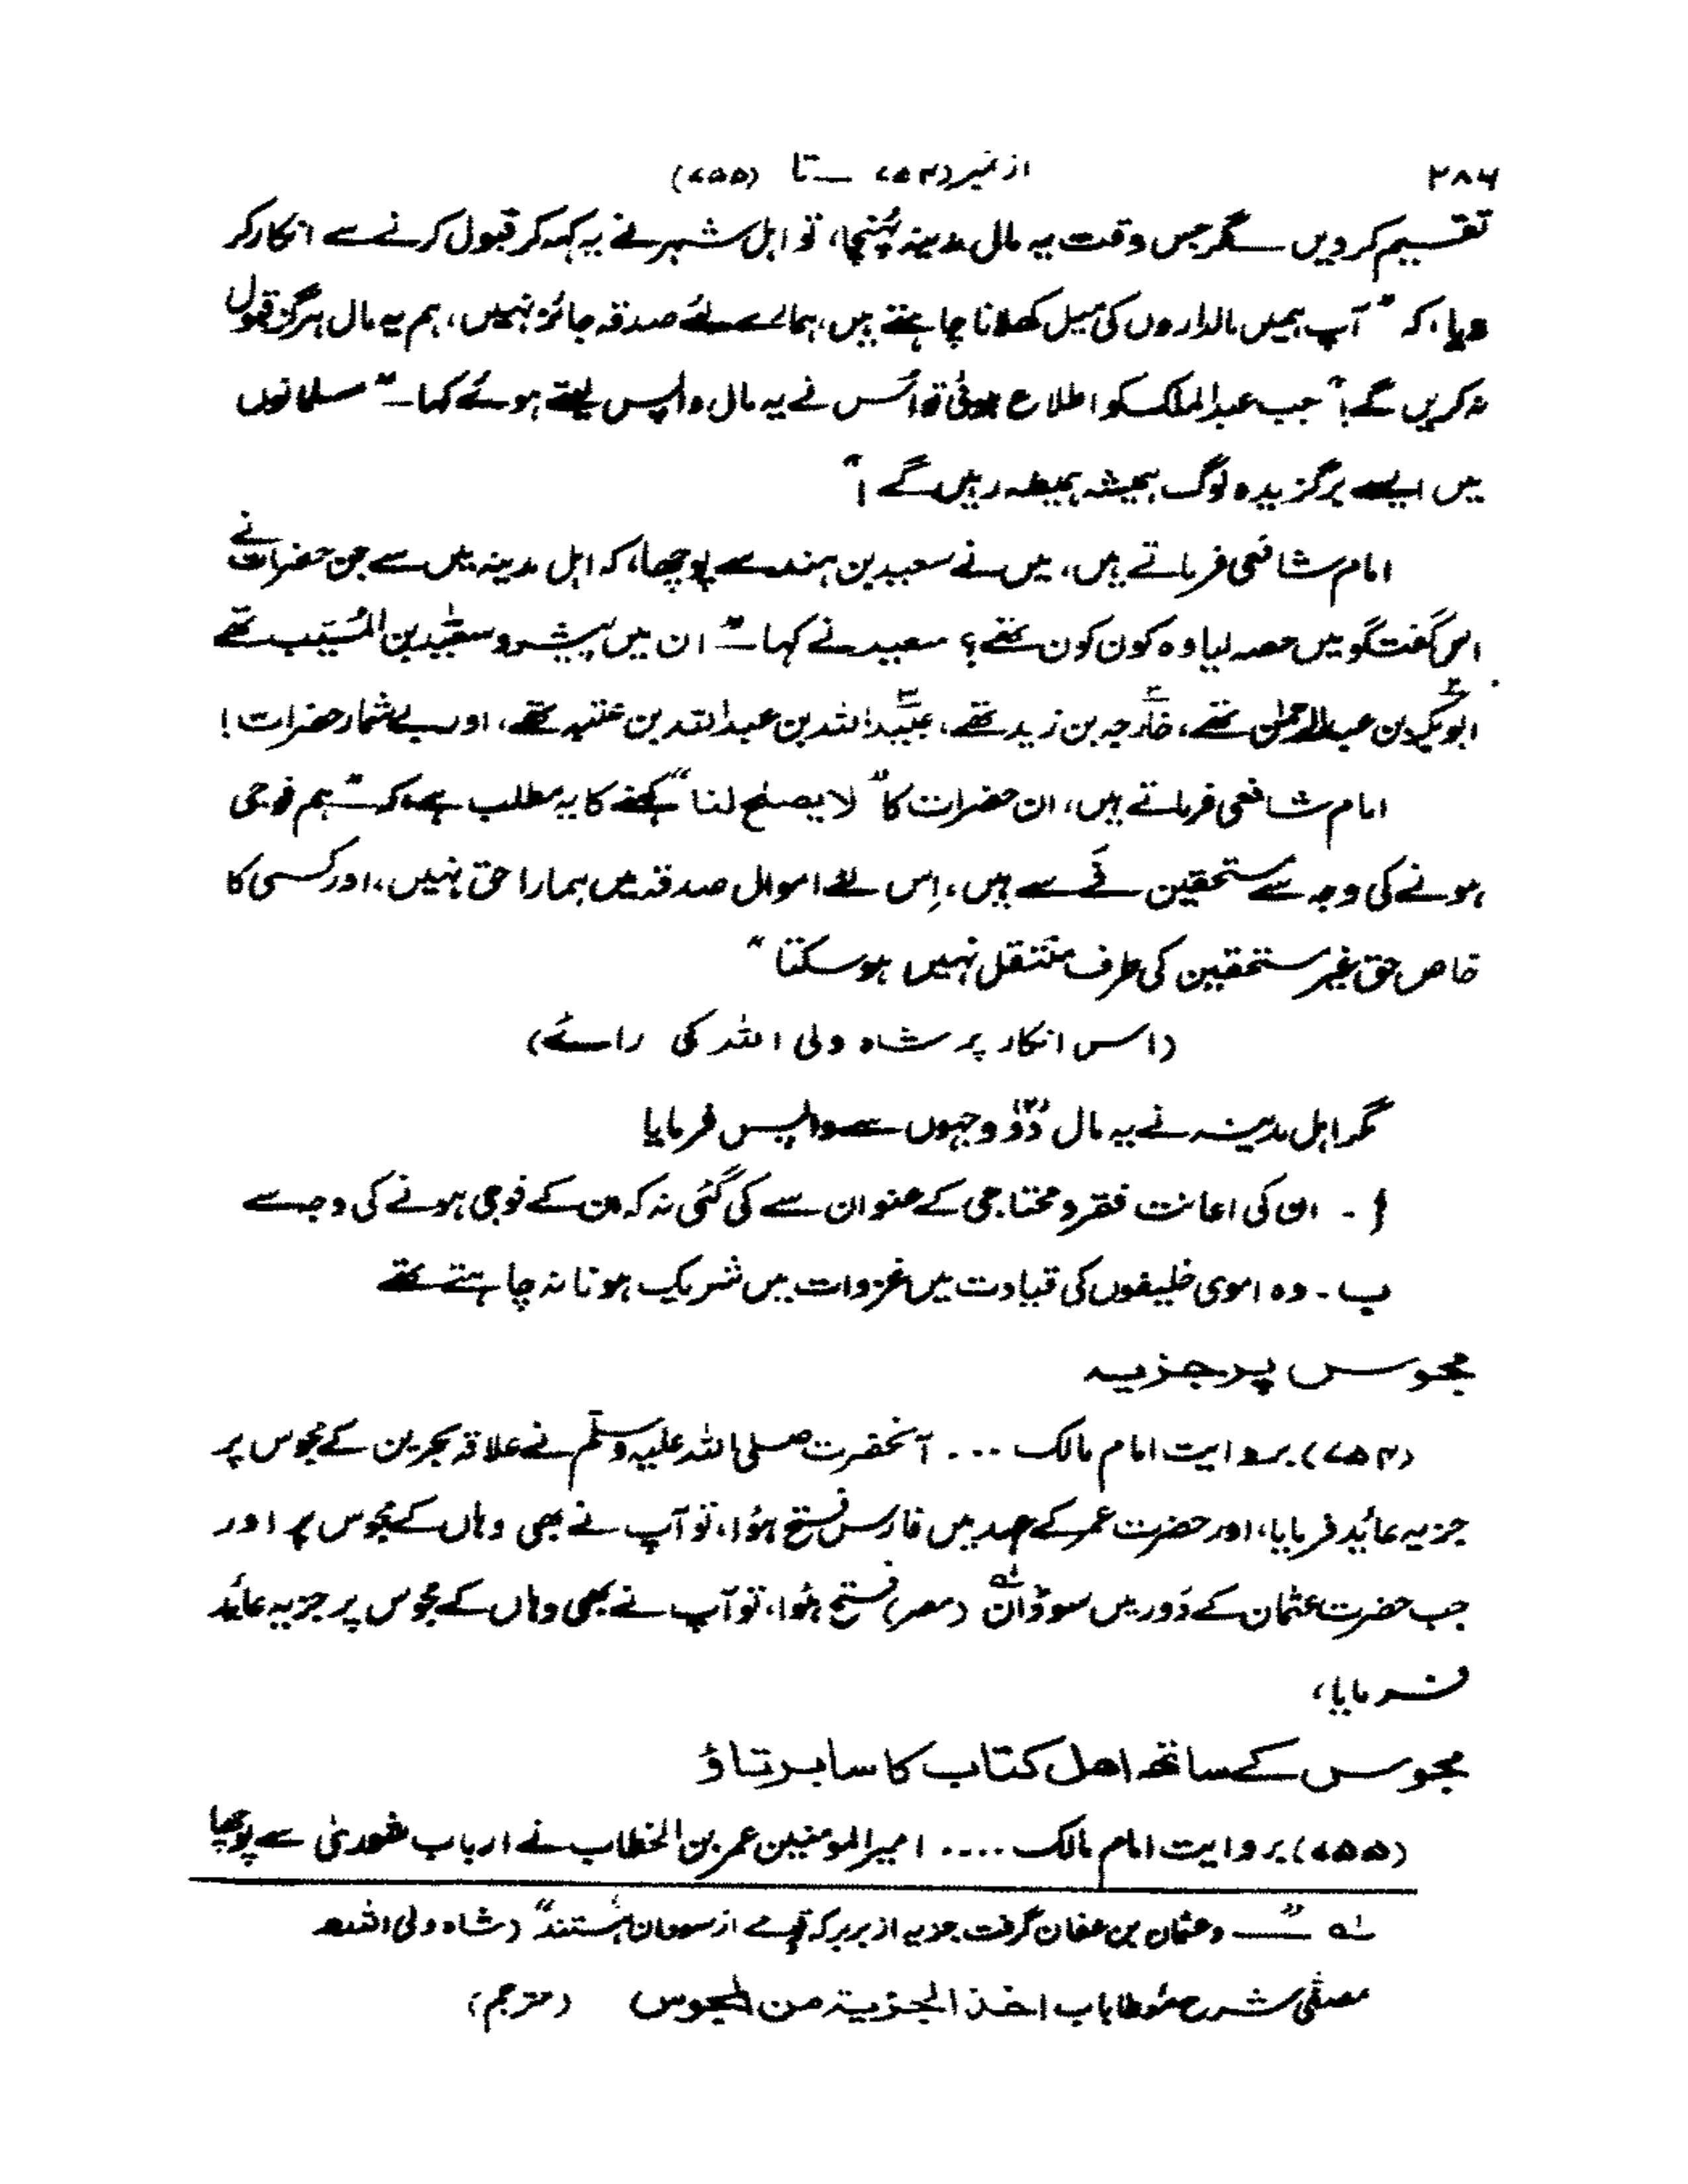 ۲۸۶ از نمبر (۷۵۴) ـــ تا (۷۵۵)
تقسیم کر دیں ــ مگر جس وقت یہ مال مدینہ پہنچا، تو اہل شہر نے یہ کہہ کر قبول کرنے سے انکار کر
دیا، کہ "آپ ہمیں مالداروں کی میل کھلانا چاہتے ہیں، ہمارے لئے صدقہ جائز نہیں، ہم یہ مال ہرگز قبول
نہ کریں گے!" جب عبدالملک کو اطلاع ہوئی تو اُس نے یہ مال واپس لیتے ہوئے کہا ــ "مسلمانوں
میں ایسے برگزیدہ لوگ ہمیشہ ہمیشہ رہیں گے!"
امام شافعی فرماتے ہیں، میں نے سعید بن ہند سے پوچھا، کہ اہل مدینہ میں سے جن حضرات نے
اس گفتگو میں حصہ لیا وہ کون کون تھے؟ سعید نے کہا ــ "ان میں پیشرو سعیدؓ بن المُسَیّب تھے
ابوبکرؓ بن عبدالرحمٰن تھے، خارجہؓ بن زید تھے، عبیداللہؓ بن عبداللہ بن عتبہ تھے، اور بے شمار حضرات!
امام شافعی فرماتے ہیں، ان حضرات کا "لا یصلح لنا" کہنے کا یہ مطلب ہے، کہ ــ "ہم فوجی
ہونے کی وجہ سے مستحقین فَے سے ہیں، اِس لئے اموال صدقہ میں ہمارا حق نہیں، اور کسی کا
خاص حق غیر مستحقین کی طرف منتقل نہیں ہو سکتا"
(اس انکار پر شاہ ولی اللہ کی رائے)
مگر اہل مدینہ نے یہ مال دو (۲) وجہوں سے واپس فرمایا
أ ۔ ان کی اعانت فقر و محتاجی کے عنوان سے کی گئی نہ کہ ان کے فوجی ہونے کی وجہ سے
ب ۔ وہ اموی خلیفوں کی قیادت میں غزوات میں شریک ہونا نہ چاہتے تھے
مجوس پر جزیہ
(۷۵۴) بروایت امام مالک ... آنحضرت صلی اللہ علیہ وسلم نے علاقہ بحرین کے مجوس پر
جزیہ عائد فرمایا، اور حضرت عمر کے عہد میں فارس فتح ہؤا، تو آپ نے بھی وہاں کے مجوس پر اور
جب حضرت عثمان کے دَور میں سوڈان لہ (مصر) فتح ہؤا، تو آپ نے بھی وہاں کے مجوس پر جزیہ عائد
فرمایا،
مجوس کے ساتھ اھل کتاب کا سا برتاؤ
(۷۵۵) بروایت امام مالک .... امیر المومنین عمر بن الخطاب نے ارباب شوریٰ سے پوچھا
لہ ــ "وعثمان بن عفان گرفت جزیہ از بربر کہ قومے از سودان ہستند" (شاہ ولی اللہ
مصفّٰی شرح مؤطا باب اخذ الجزیۃ من المجوس) (مترجم)